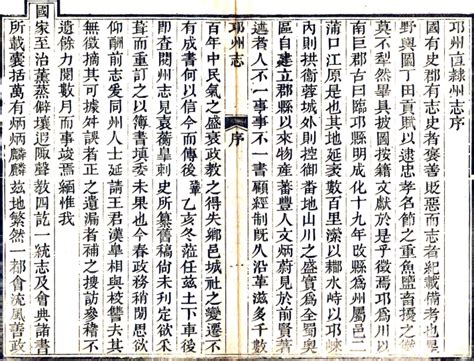 邛州直隸州志序
國有史郡有志史者褒善貶惡而志者紀載備考也是
野與圖丁田貢賦以逮忠孝名節之重魚鹽畜擾之
莫不犁然畢具披圖按籍文獻於是乎徵焉邛州爲川
南巨郡古曰臨邛縣明成化十九年改縣爲州屬邑二
蒲口江原是也其地延袤數百里深以水峙以邛崍
內則拱衞蓉城外則控御番地山川之盛實爲全蜀
區自建立郡縣以來物產蕃豐人文炳蔚見於前賢著
述者人不一事事不一書顧經制旣久沿革滋多千數
邛州志 序
百年中民氣之盛衰政教之得失鄉邑城社之變遷不
有成書何以信今而傳後乙亥冬蒞任茲土下車後
即查閱州志見袁蘅皐刺史所纂舊稿尚未刊定欲
葺而重訂之以簿書填委未果也今春政務稍閒思欲
仰酬前志爰同州人士延請王君漢皐相與校讐去其
無徵摘其可據舛誤者正之遺漏者補之搜訪參稽不
遺餘力閱數月而事竣焉緬惟我
國家至治薰蒸僻壤遐陬聲教四訖一統志及會典諸書
所載囊括萬有炳炳麟麟茲地繁然一都會流風善政